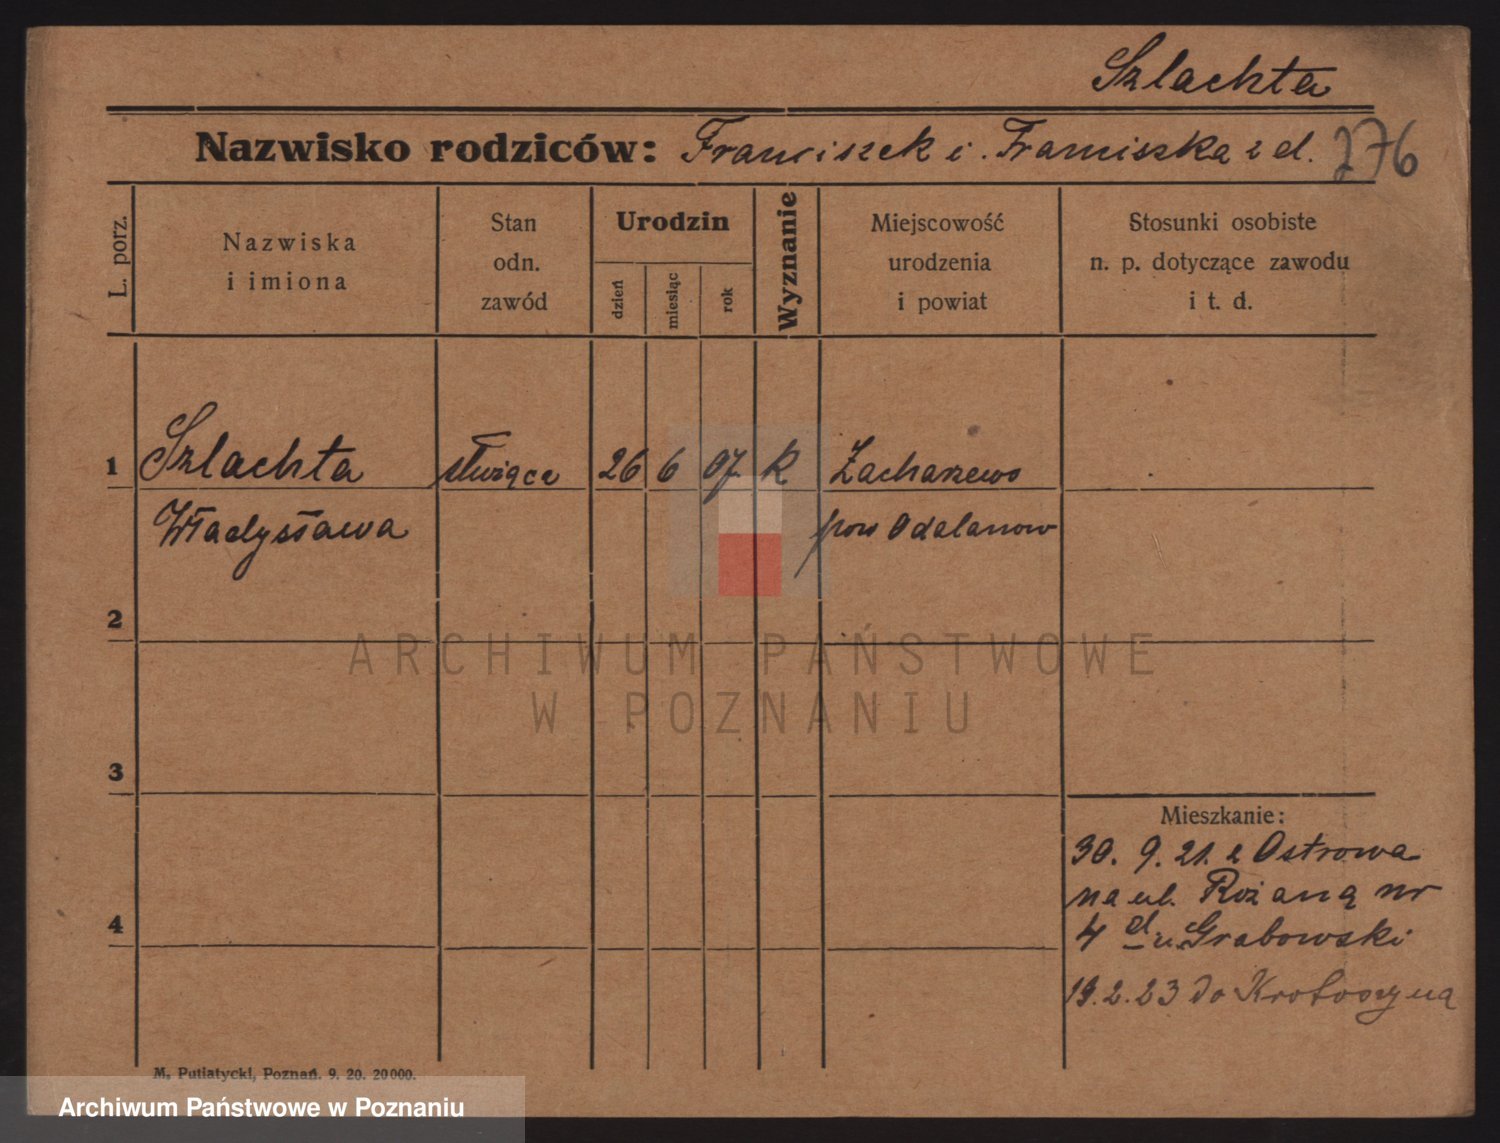 Szlachta
Nazwisko rodziców: Franciszek i Franciszka z d. 276
L. porz.
Nazwiska
i imiona
Stan
odn.
zawód
Urodzin
dzień
miesiąc
rok
Wyznanie
Miejscowość
urodzenia
i powiat
Stosunki osobiste
n. p. dotyczące zawodu
i t. d.
1 Szlachta służąca 26 6 07 k Zacharzewo
Władysława pow Odalanow
2
ARCHIWUM PAŃSTWOWE
W POZNANIU
3
Mieszkanie:
30. 9. 21. z Ostrowa
na ul. Różaną nr
4 d u. Grabowski
4
19. 2. 23 do Krotoszyna
M. Putiatycki, Poznań. 9. 20. 20000.
Archiwum Państwowe w Poznaniu